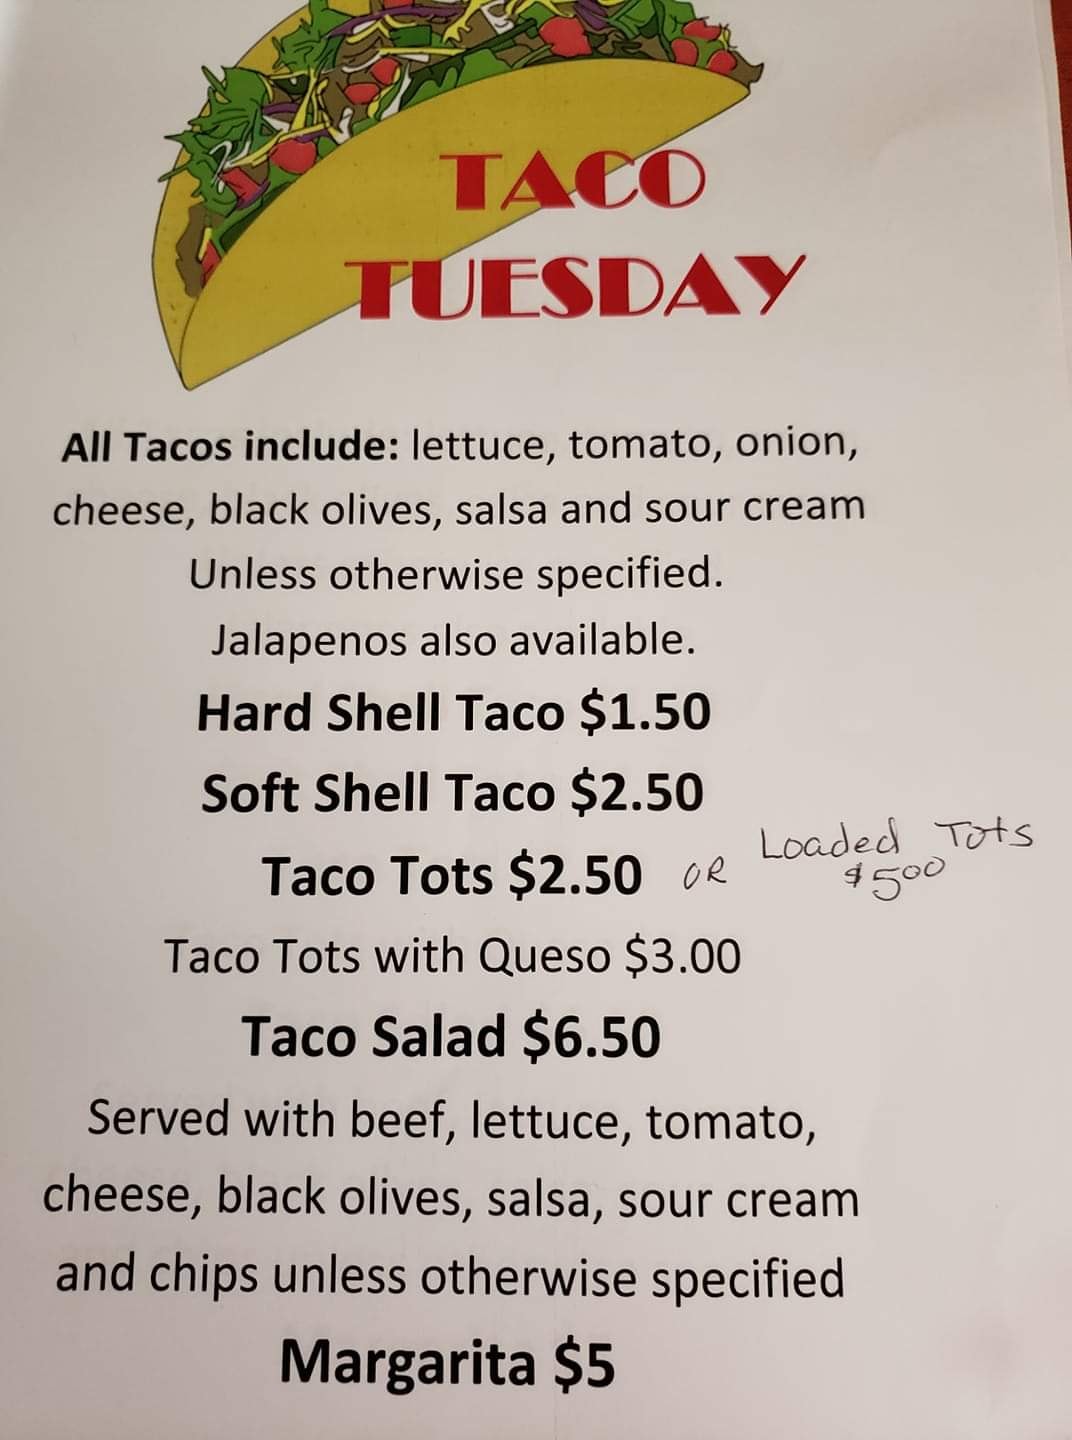 TACO
TUESDAY
All Tacos include: lettuce, tomato, onion,
cheese, black olives, salsa and sour cream
Unless otherwise specified.
Jalapenos also available.
Hard Shell Taco $1.50
Soft Shell Taco $2.50
Taco Tots $2.50 OR Loaded Tots
$500
Taco Tots with Queso $3.00
Taco Salad $6.50
Served with beef, lettuce, tomato,
cheese, black olives, salsa, sour cream
and chips unless otherwise specified
Margarita $5